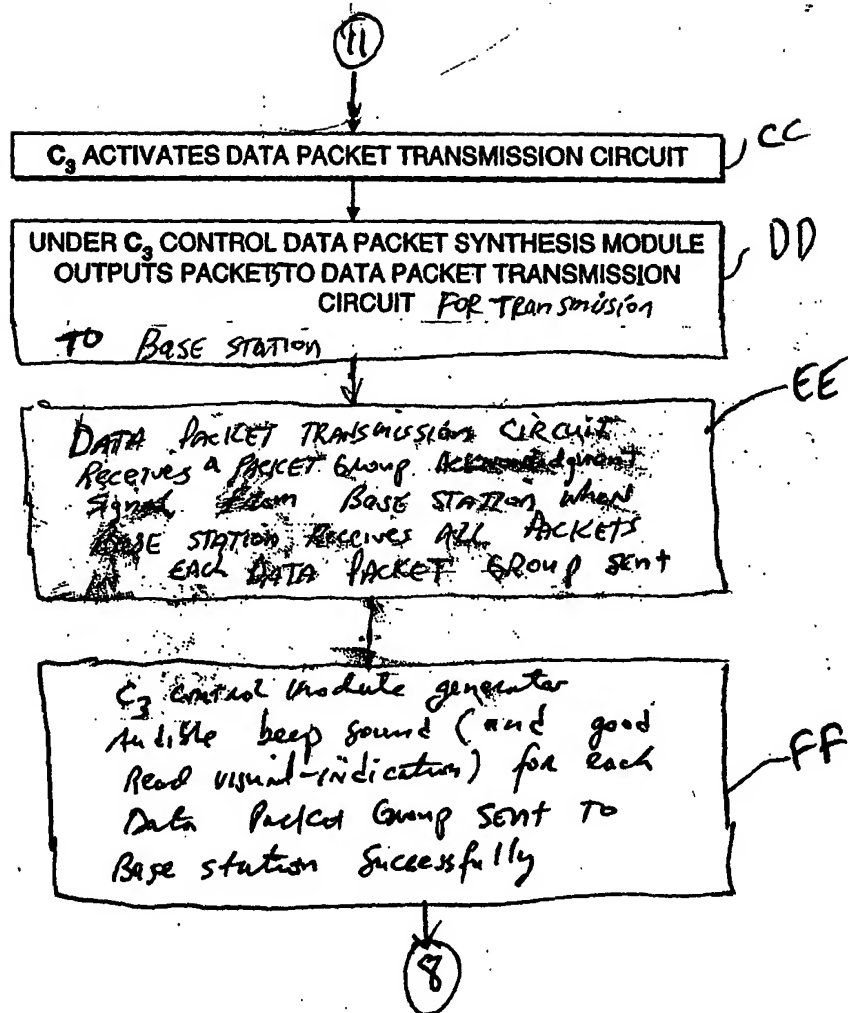 11
C₃ ACTIVATES DATA PACKET TRANSMISSION CIRCUIT
CC
UNDER C₃ CONTROL DATA PACKET SYNTHESIS MODULE
DD
OUTPUTS PACKETS TO DATA PACKET TRANSMISSION
CIRCUIT FOR Transmission
TO BASE STATION
EE
DATA PACKET TRANSMISSION CIRCUIT
Receives a PACKET Group Acknowledgment
Signal from BASE STATION when
BASE STATION Receives ALL PACKETS
EACH DATA PACKET GROUP sent
C₃ control module generator
Audible beep sound (and good
Read visual-indication) for each
FF
Data Packet Group SENT TO
Base station Successfully
8